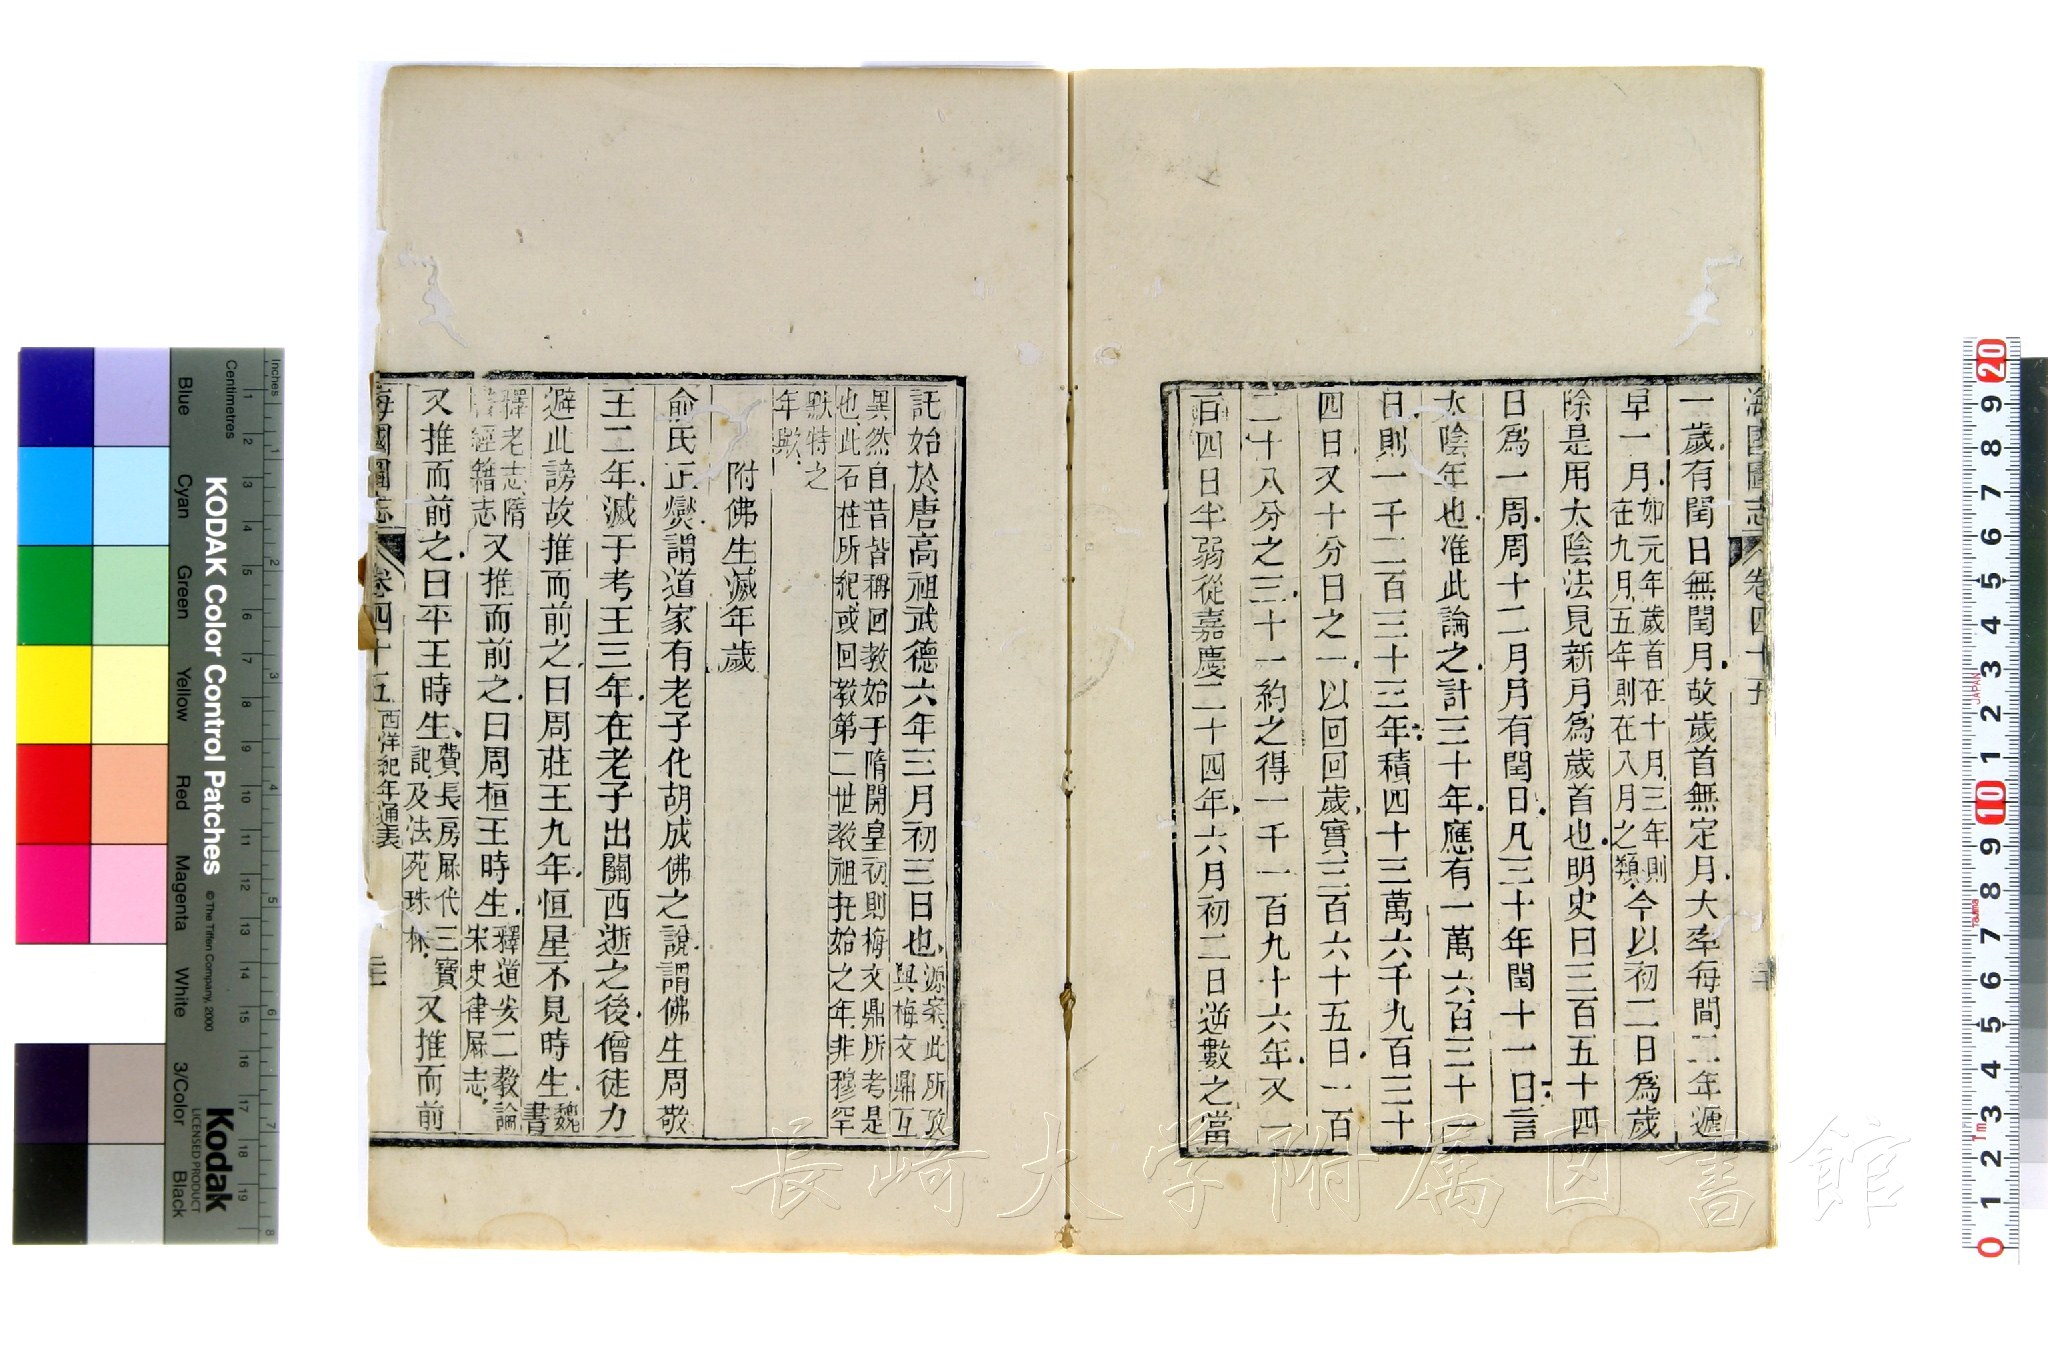 海國圖志
卷四十五
一歲有閏日無閏月故歲首無定月大率每間二年遞
早一月如元年歲首在十月三年則
在九月五年則在八月之類今以初二日為歲
除是用太陰法見新月為歲首也明史曰三百五十四
日為一周周十二月月有閏日凡三十年閏十一日言
太陰年也准此論之計三十年應有一萬六百三十一
日則一千二百三十三年積四十三萬六千九百三十
四日又十分日之一以回回歲實三百六十五日一百
二十八分之三十一約之得一千一百九十六年又一
百四日半弱從嘉慶二十四年六月初二日逆數之當
託始於唐高祖武德六年三月初三日也源案此所攷
與梅文鼎互
異然自昔皆稱回教始于隋開皇初則梅文鼎所考是
也此石柱所紀或回教第二世教祖托始之年非穆罕
默特之
年歟
附佛生滅年歲
俞氏正燮謂道家有老子化胡成佛之說謂佛生周敬
王二年滅于考王三年在老子出關西逝之後僧徒力
避此謗故推而前之曰周莊王九年恒星不見時生魏
書
釋老志隋
書經籍志又推而前之曰周桓王時生釋道安二教論
宋史律厤志
又推而前之曰平王時生費長房厤代三寶
記及法苑珠林又推而前
海國圖志
卷四十五
西洋紀年通表
長崎大学附属図書館
KODAK Color Control Patches
© The Tiffen Company, 2000
Kodak
LICENSED PRODUCT
Inches
Centimetres
Blue
Cyan
Green
Yellow
Red
Magenta
White
3/Color
Black
1 2 3 4 5 6 7 8 9 10 11 12 13 14 15 16 17 18 19
1 2 3 4 5 6 7 8
20 9 8 7 6 5 4 3 2 1 10 9 8 7 6 5 4 3 2 1 0
JAPAN